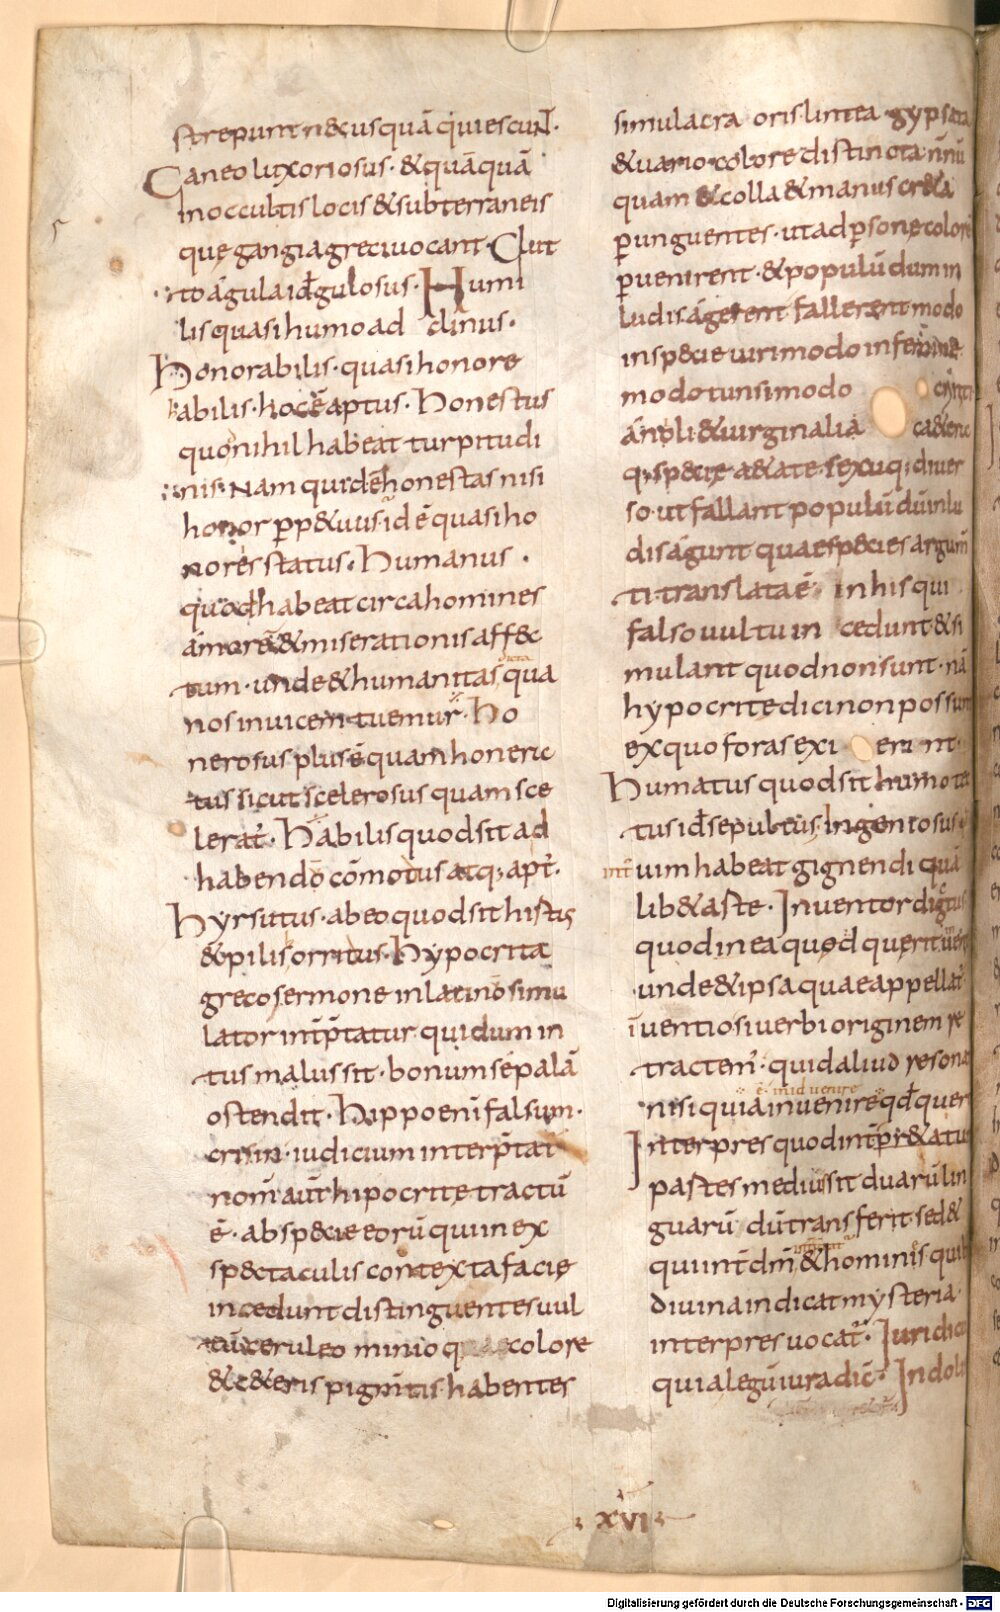 strepunt n&cusquā quiescuNT·
Ganeo luxoriosus· &quāquā
inoccultis locis &subterraneis
quę gangiagreciuocant· Glut
to águla id÷gulosus· Humi
lis quasi humo ad clinus·
Honorabilis· quasi honore
habilis· hoc ē aptus· Honestus
quo nihil habeat turpitudi
nis· Nam quid ē honestas nisi
honor ꝑp&uus· id ē quasi ho
noris status· Humanus·
quod habeat circa homines
amorē &miserationis aff&c
tum· unde &humanitas dicta qua
nos inuicem tuemur· Ho
nerosus plus ē quam honera
tus sicut scelerosus quam sce
lerat᷒· Habilis quod sit ad
habendō cōmodus atq; apt᷒·
Hyrsutus· ab eo quod sit histis
&pilis orritus· Hypocrita
greco sermone in latino simu
lator int̄p̄tatur qui dum in
tus malus sit· bonum sé palā
ostendit· Hippo enī falsum·
crisin· iudicium interp̄tat᷒
nom̄ aut̄ hipocritę tractū
ē· ab sp&cie eorū qui in ex
sp&ctaculis contexta facię
incedunt distinguentes uul
tū ceruleo minio q colore
&c&eris pigm̄tis· habentes
simulacra oris lintea gypsata
&uario colore distincta· nnū
quam &colla &manus cr&a
ꝑunguentes· ut ad ꝑsonę colorē
ꝑuenirent· &populū dum in
ludis ágerent fallerent modo
in sp&cie uiri modo in femine
modo tunsi modo criniti
ánoli &uirginalia c&era
q; sp&cię a&ate sexuq; diuer
so· ut fallant populū dū in lu
dis águnt quae sp&cies argum̄
ti translata ē in his qui
falso uultu in cedunt &si
mulant quod non sunt· nā
hypocrite dici non possunt
ex quo foras exi erint·
Humatus quod sit humo tec
tus id÷ sepultus· Ingeniosus q
uim habeat int᷒ gignendi quā
lib& arte· Inuentor dictus
quod in ea quod querit ueni
unde &ipsa quae appellat᷒
īuentio si uerbi originem re
tractem᷒· quid aliud resonat
ē· in id uenire
nisi quia inuenire qđ quer
Interpres quod int̄ pr&atur
partes medius sit duarū lin
guarū dū transferit· sed &
qui int̄ dm̄ &hominis quib
diuina indicat mysteria·
interpres uocat᷒· Iuridic
quia legū iura dic̄· Indol
· xvi ·
Digitalisierung gefördert durch die Deutsche Forschungsgemeinschaft · DFG